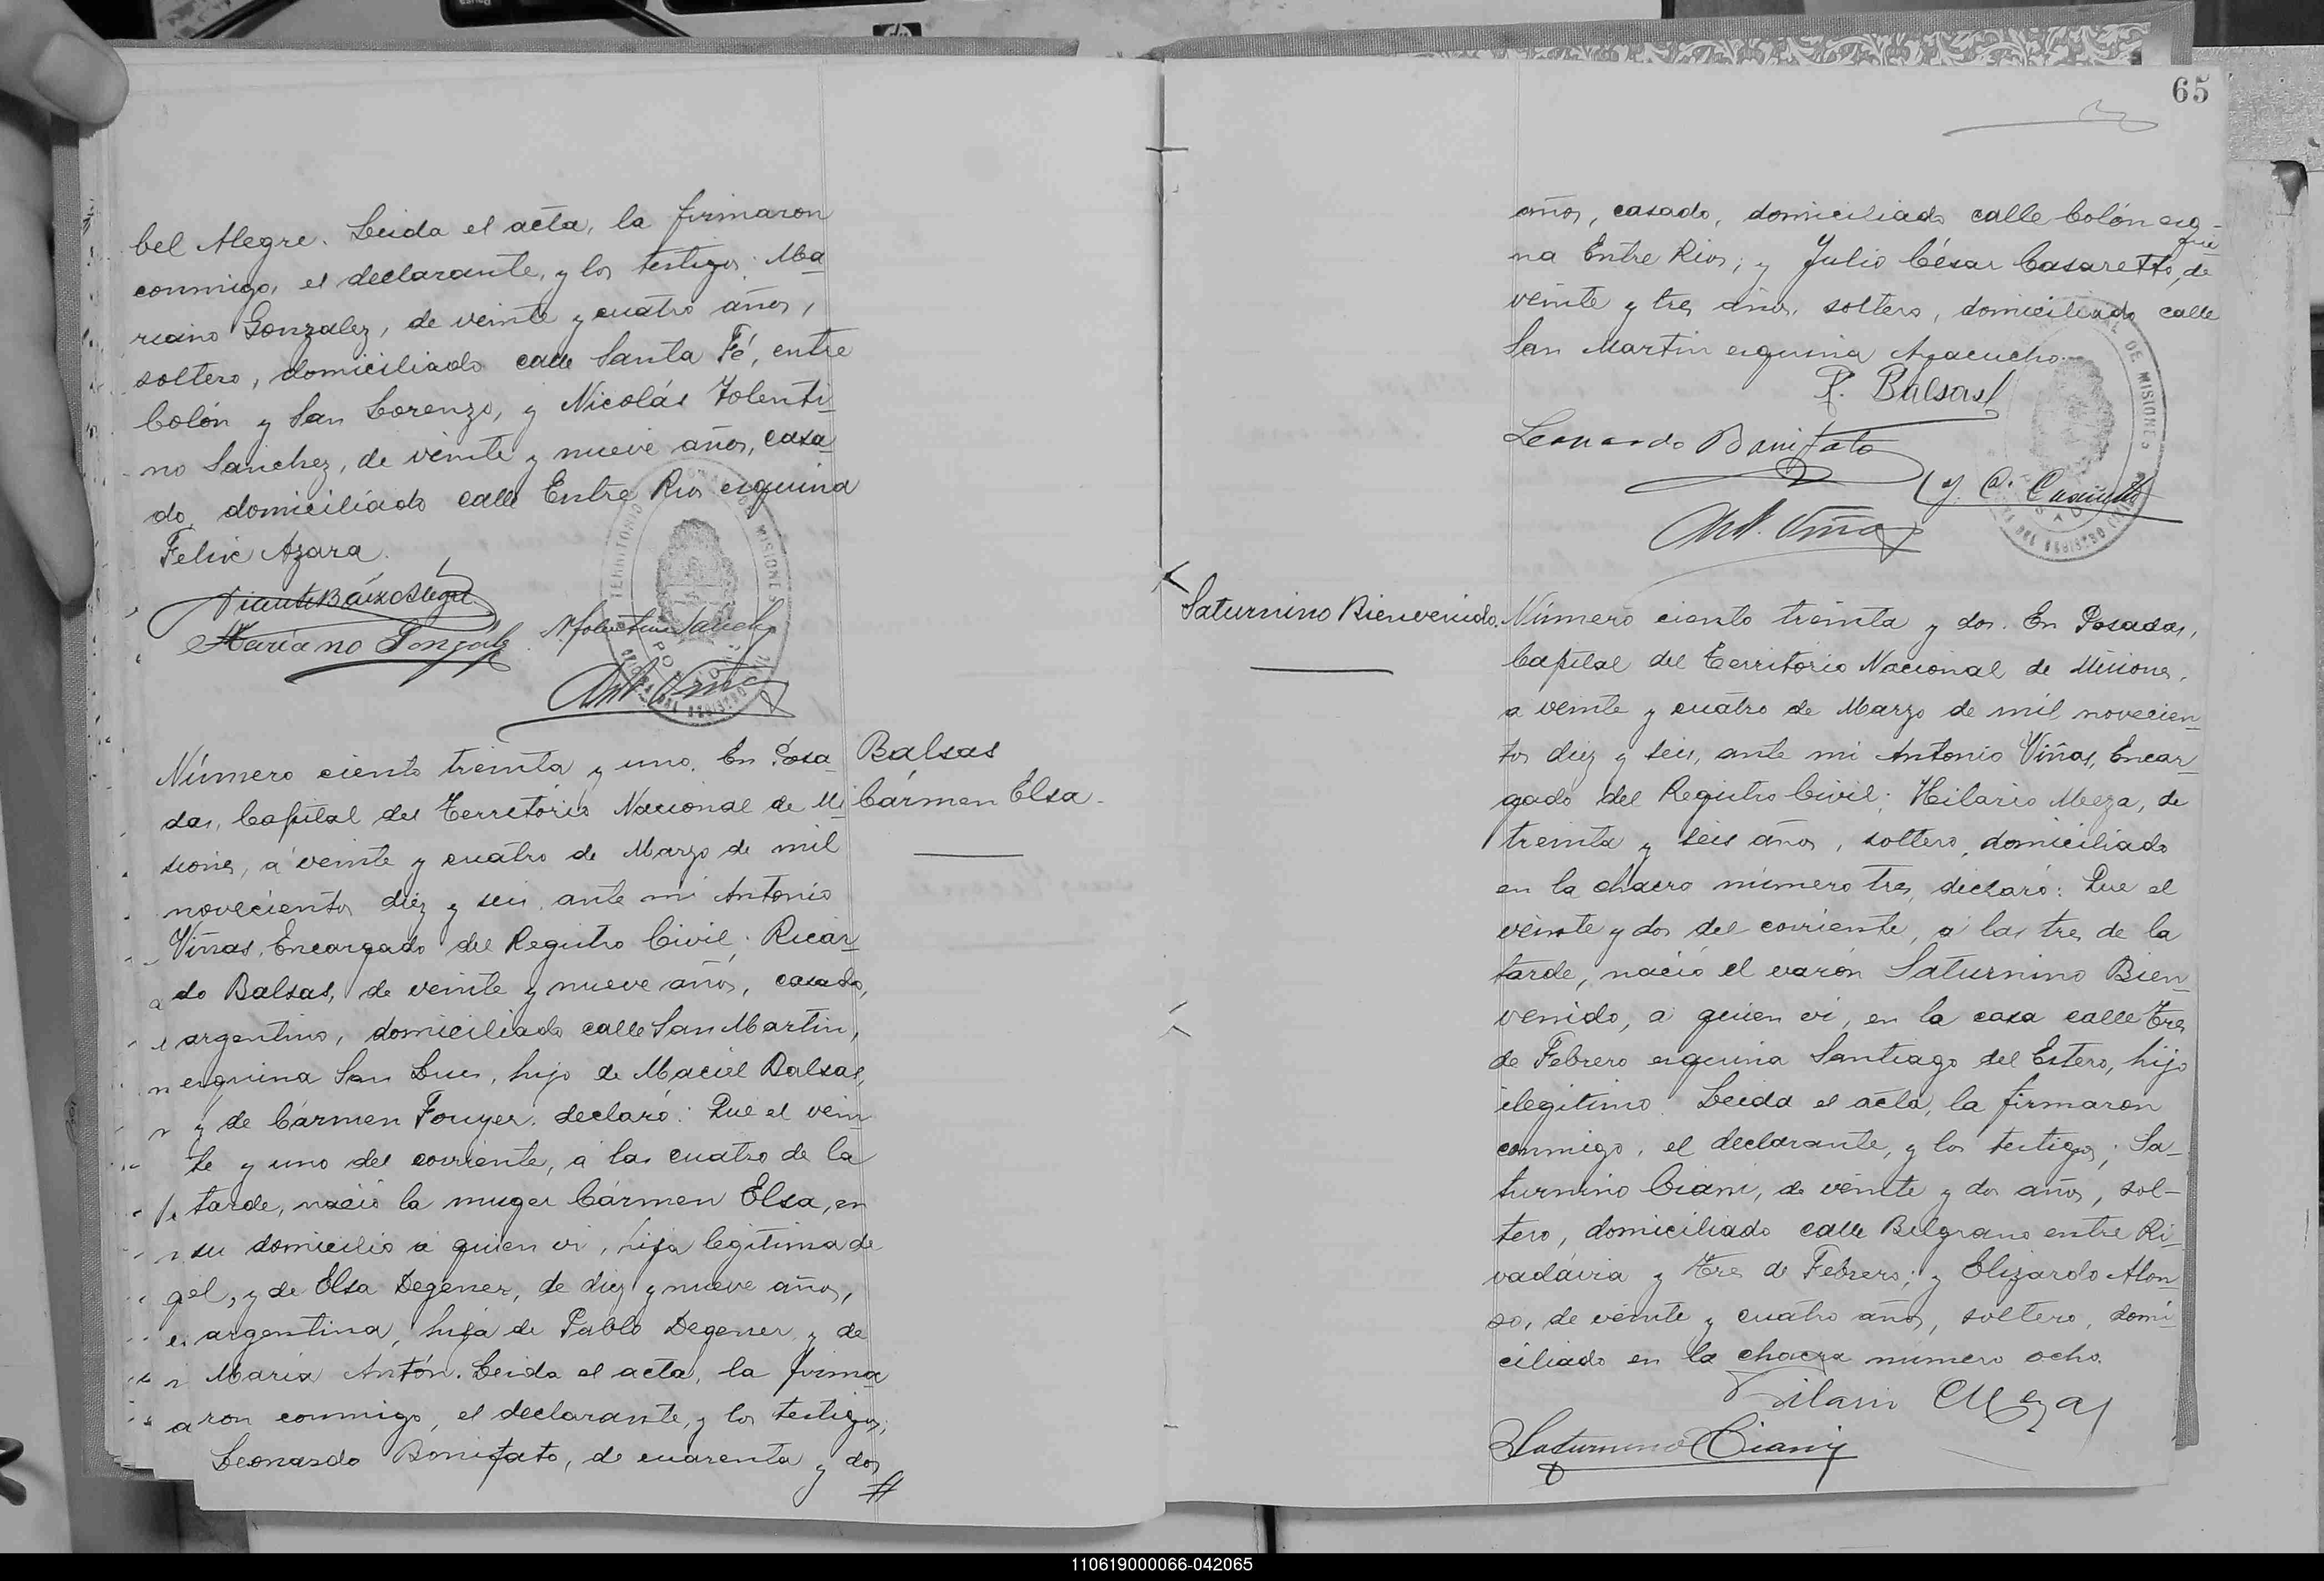 bel Alegre. Leida el acta, la firmaron
conmigo, el declarante, y los testigos: Ma
riano Gonzalez, de veinte y cuatro años,
soltero, domiciliado calle Santa Fé, entre
Colón y San Lorenzo, y Nicolás Tolenti
no Sanchez, de veinte y nueve años, casa
do, domiciliado calle Entre Rios esquina
Felix Azara.
Mariano Gonzalez
Balsas
Cármen Elsa
Número ciento treinta y uno. En Posa
das, Capital del Territorio Nacional de Mi
siones, a veinte y cuatro de Marzo de mil
novecientos diez y seis, ante mi Antonio
Viñas, Encargado del Registro Civil; Ricar
do Balsas, de veinte y nueve años, casado,
argentino, domiciliado calle San Martin,
esquina San Luis, hijo de Maciel Balsas,
y de Cármen Fouyer, declaró: Que el vein
te y uno del corriente, a las cuatro de la
tarde, nació la muger Cármen Elsa, en
su domicilio a quien vi, hija legitima de
el, y de Elsa Degener, de diez y nueve años,
argentina, hija de Pablo Degener y de
Maria Antón. Leida el acta, la firma
ron conmigo, el declarante, y los testigos;
Leonardo Bonifato, de cuarenta y dos
65
años, casado, domiciliado calle Colón esq-
ui
na Entre Rios; y Julio César Casaretto, de
veinte y tres años, soltero, domiciliado calle
San Martin esquina Ayacucho.
R. Balsas
Leonardo Bonifato
J. C. Casaretto
Ant. Viñas
Saturnino Bienvenido.
Número ciento treinta y dos. En Posadas,
Capital del Territorio Nacional de Misiones,
a veinte y cuatro de Marzo de mil novecien
tos diez y seis, ante mi Antonio Viñas, Encar
gado del Registro Civil; Hilario Meza, de
treinta y seis años, soltero, domiciliado
en la chacra número tres, declaró: Que el
veinte y dos del corriente, a las tres de la
tarde, nació el varón Saturnino Bien
venido, a quien vi, en la casa calle Tres
de Febrero esquina Santiago del Estero, hijo
ilegitimo. Leida el acta, la firmaron
conmigo, el declarante, y los testigos; Sa-
turnino Ciani, de veinte y dos años, sol-
tero, domiciliado calle Belgrano entre Ri
vadavia y Tres de Febrero; y Elizardo Alon
so, de veinte y cuatro años, soltero, domi
ciliado en la chacra numero ocho.
Hilario Meza
Saturnino Ciani
110619000066-042065